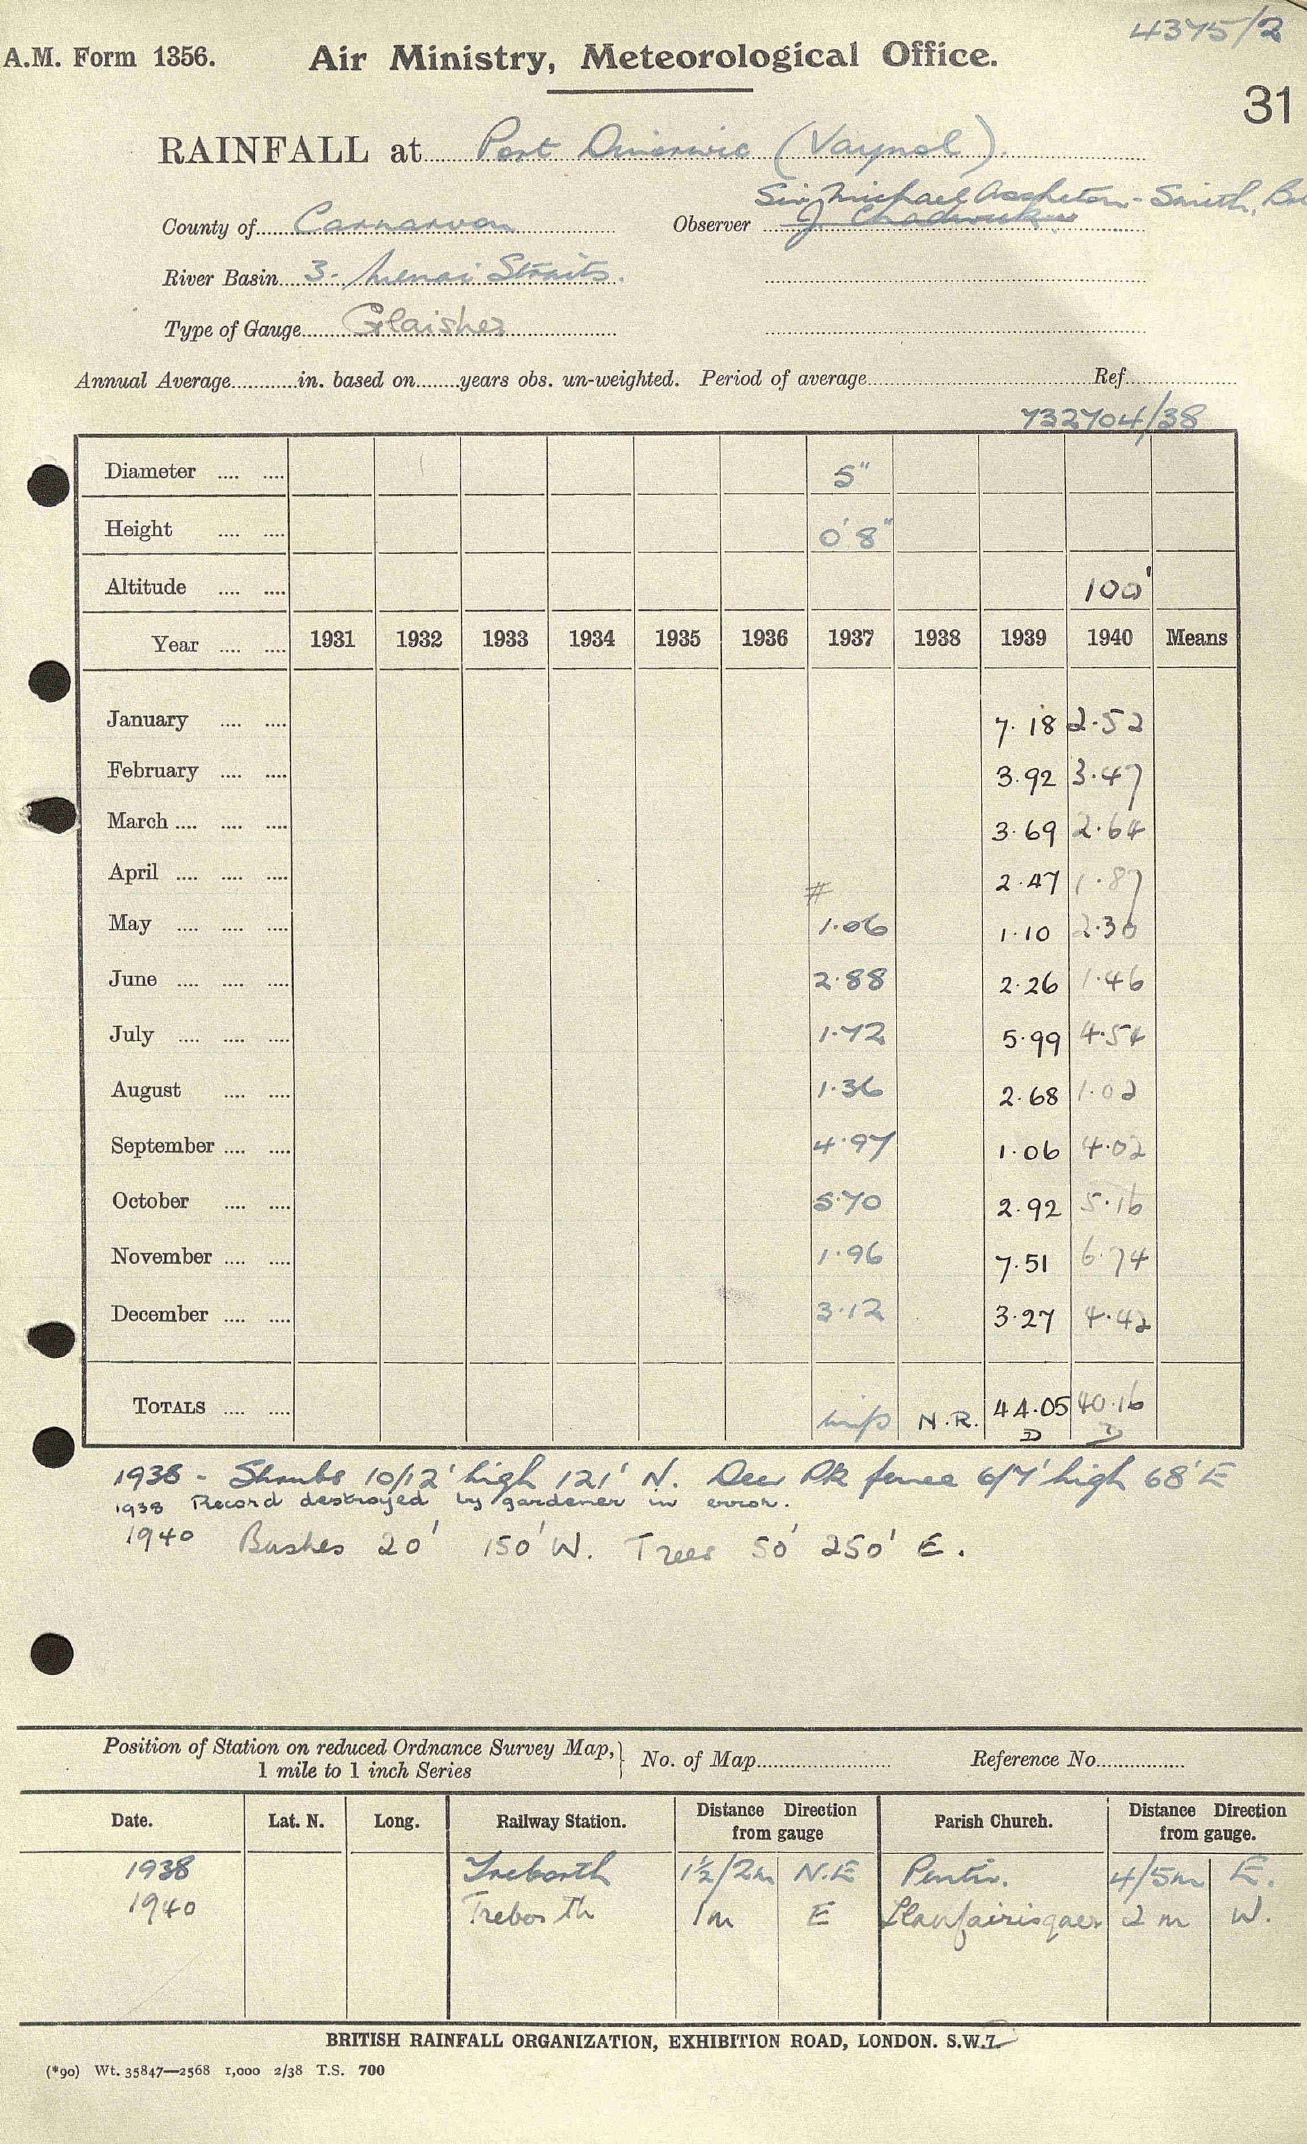 4375/2
A.M. Form 1356. Air Ministry, Meteorological Office.
31
RAINFALL at Port Dinorwic (Vaynol).
Sir Michael Assheton-Smith, Bt
County of Carnarvon Observer J. Chadwick
River Basin 3. Menai Straits.
Type of Gauge Glaisher
Annual Average in. based on years obs. un-weighted. Period of average Ref
732704/38
Diameter .... .... 5"
Height .... .... 0' 8"
Altitude .... .... 100'
Year .... .... 1931 1932 1933 1934 1935 1936 1937 1938 1939 1940 Means
January .... .... 7.18 2.52
February .... .... 3.92 3.47
March .... .... .... 3.69 2.64
April .... .... .... # 2.47 1.87
May .... .... .... 1.06 1.10 2.30
June .... .... .... 2.88 2.26 1.46
July .... .... .... 1.72 5.99 4.54
August .... .... 1.36 2.68 1.02
September .... .... 4.97 1.06 4.02
October .... .... 5.70 2.92 5.16
November .... .... 1.96 7.51 6.74
December .... .... 3.12 3.27 4.42
TOTALS .... .... imp N.R. 44.05 40.16
D D
1938 - Shrubs 10/12' high 121' N. Deer Pk fence 6/7' high 68' E
1938 Record destroyed by gardener in error.
1940 Bushes 20' 150' W. Trees 50' 250' E.
Position of Station on reduced Ordnance Survey Map, 1 mile to 1 inch Series } No. of Map Reference No.
Date. Lat. N. Long. Railway Station. Distance Direction from gauge Parish Church. Distance Direction from gauge.
1938 Treborth 1½/2m N.E Pentir. 4/5m E.
1940 Treborth 1m E Llanfairisgaer 2 m W.
BRITISH RAINFALL ORGANIZATION, EXHIBITION ROAD, LONDON. S.W.7.
(*90) Wt. 35847—2568 1,000 2/38 T.S. 700